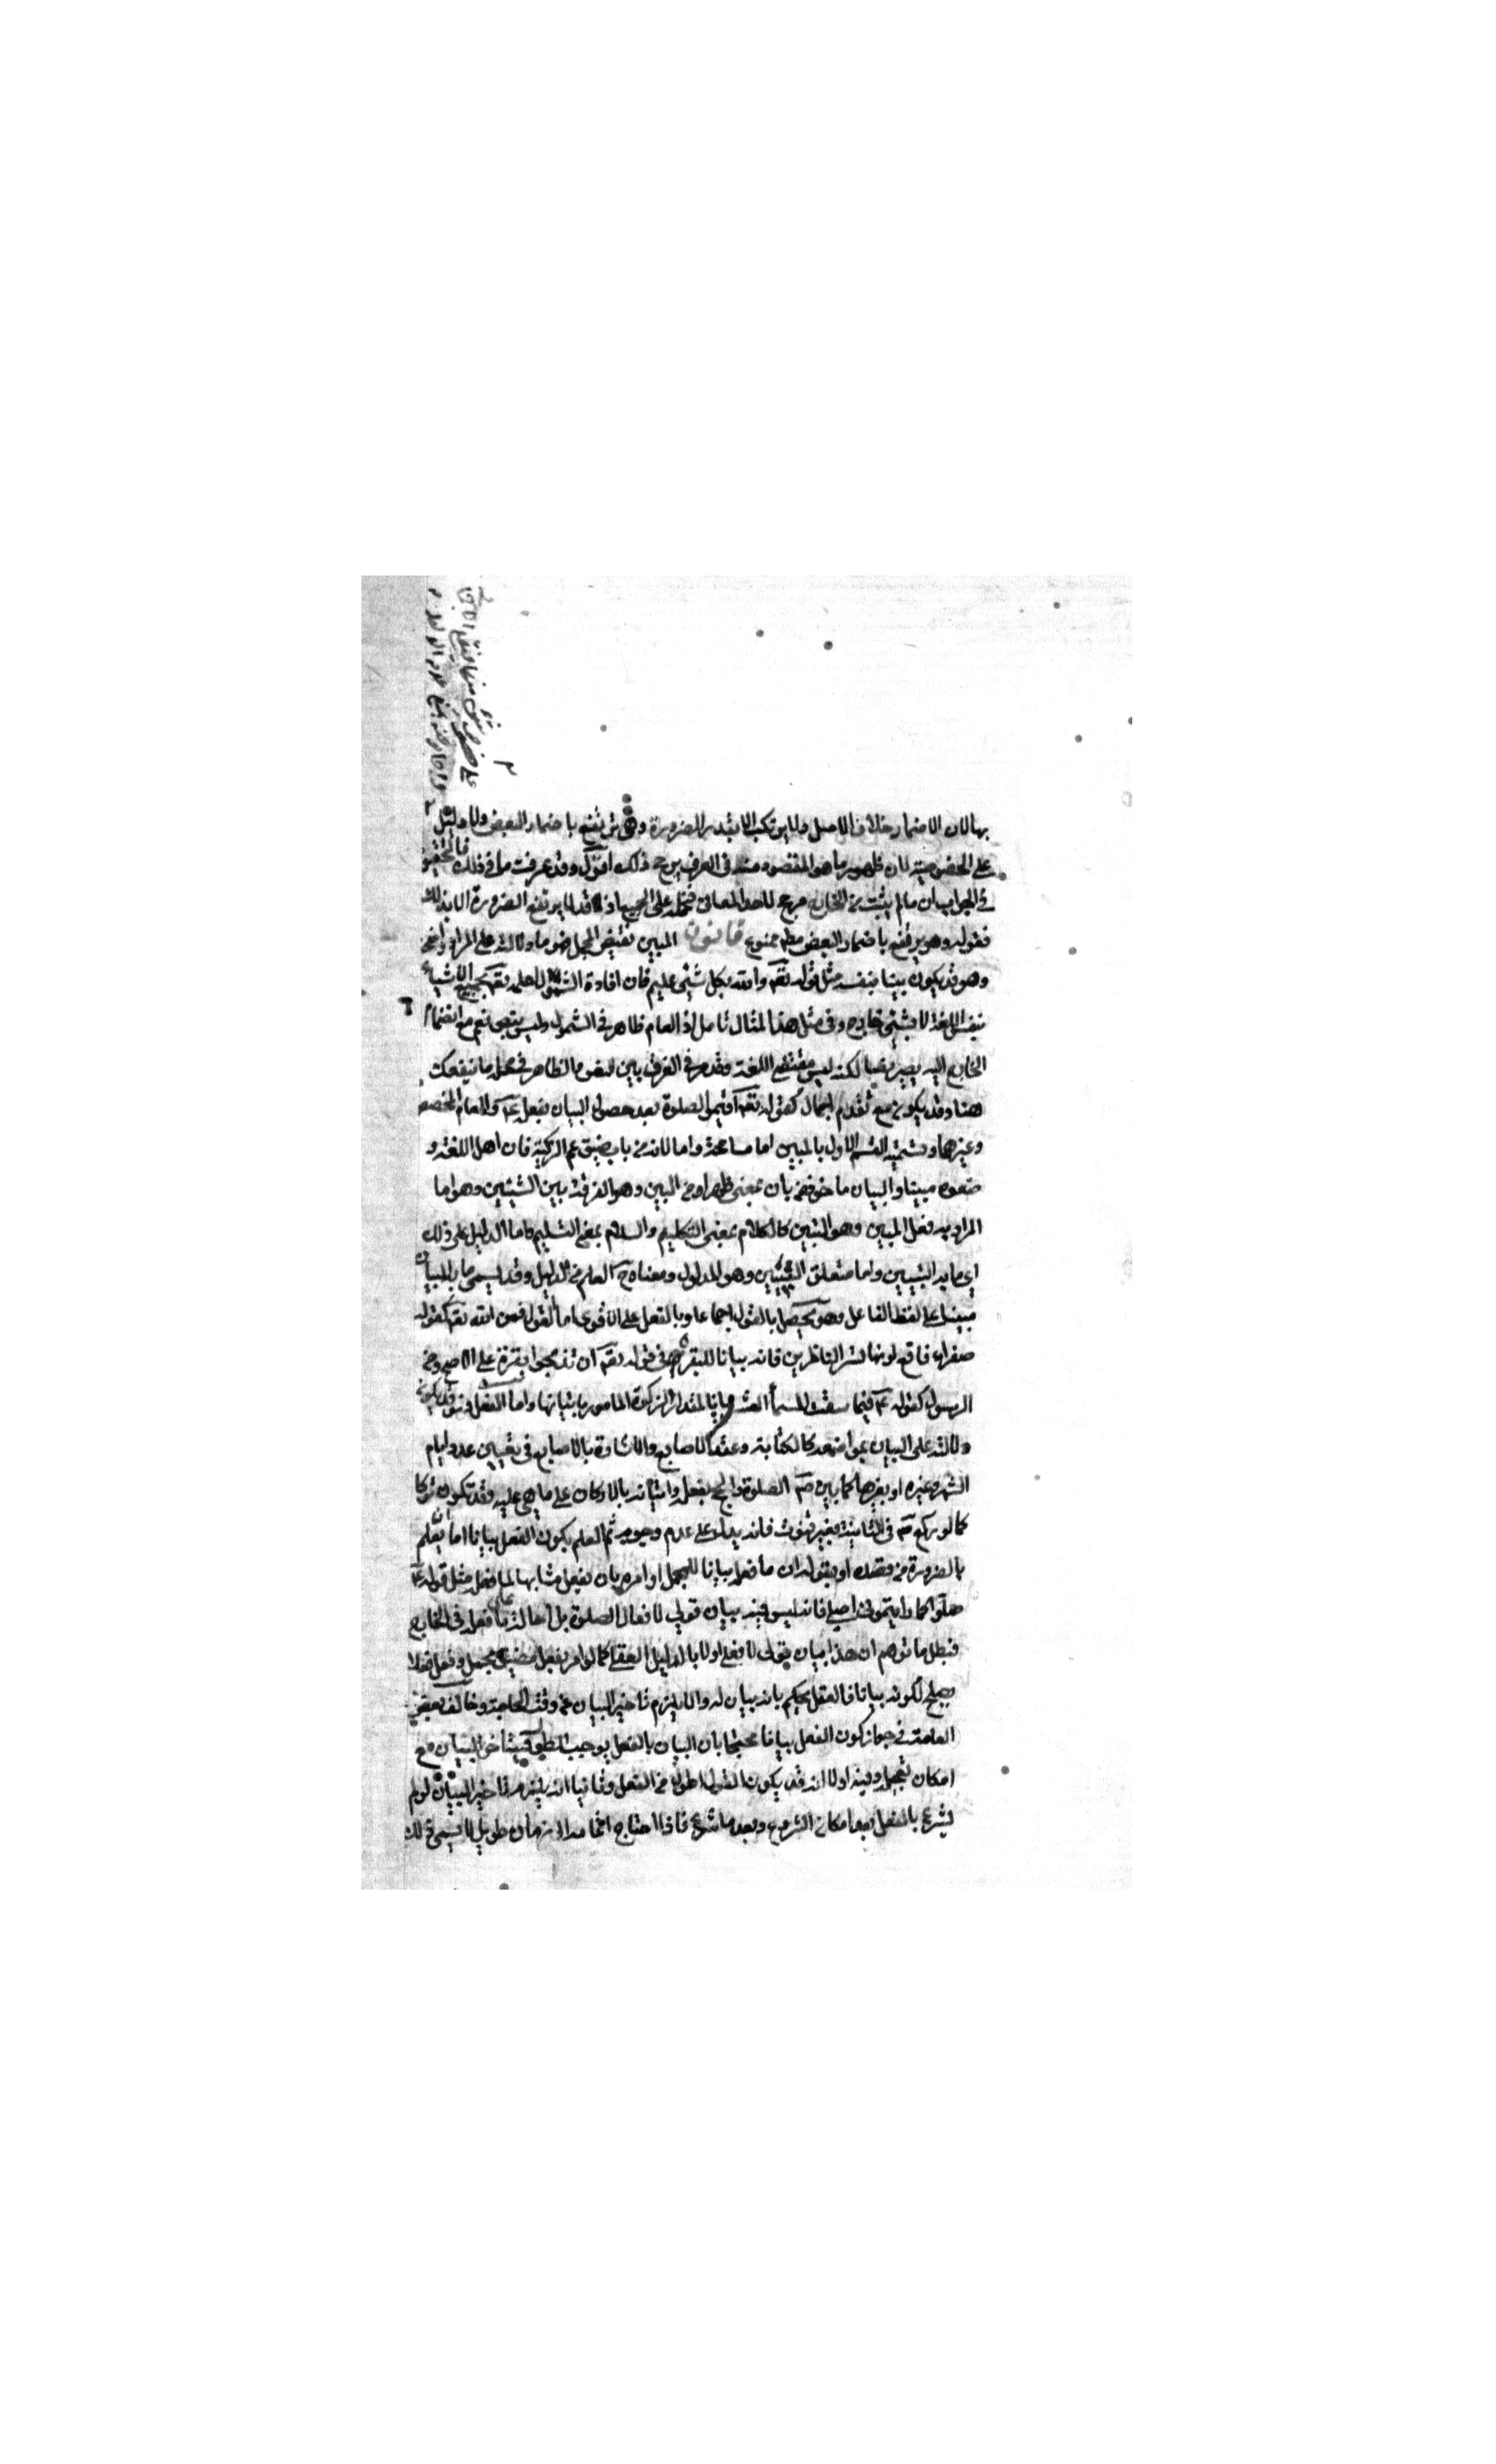 بها لان الاضمار خلاف الاصل ولا يرتكب الا بقدر الضرورة وهي ترتفع باضمار البعض ولا دليل
على الخصوصية لان ظهور ما هو المقصود منه في العرف يرجح ذلك اقول وقد عرفت ما في ذلك فالتحقيق
في الجواب ان ما لم يثبت من الخارج مرجح لاحد المعاني فحمله على الجميع اذ قد لا يرتفع الضرورة الا بذلك
فقوله وهو يرتفع باضمار البعض مطلقا ممنوع قانون المبين نقيض المجمل فهو ما دلالته على المراد واضحة
وهو قد يكون بينا بنفسه مثل قوله تعه والله بكل شيئ عليم فان افادة الشمول لعلمه تعه بجميع الاشياء
بنفس اللغة لا بشيئ خارج وفي مثل هذا المثال تامل اذ العام ظاهر في الشمول وليس بنص نعم مع انضمام
الخارج اليه يصير نصا لكنه ليس مقتضى اللغة وقد مر في الفرق بين النص والظاهر في محله ما ينفعك
هنا وقد يكون مع تقدم اجمال كقوله تعه اقيموا الصلوة بعد حصول البيان بفعله ع والعام المخصص
وغيرهما وتسمية القسم الاول بالمبين اما مسامحة واما لانه من باب ضيق فم الركية فان اهل اللغة
وضعوه مبينا والبيان ماخوذ من بان بمعنى ظهر او من البين وهو الفرقة بين الشيئين وهو اما
المراد به فعل المبين وهو التبيين كالكلام بمعنى التكليم والسلام بمعنى التسليم واما الدليل على ذلك
اي ما به التبيين واما متعلق التبيين وهو المدلول ومعناه ح العلم من الدليل وقد يسمى ما به البيان
مبينا على لفظ الفاعل وهو يحصل بالقول اجماعا وبالفعل على الاقوى اما القول فمن الله تعه كقوله
صفراء فاقع لونها تسر الناظرين فانه بيان للبقرة في قوله تعه ان تذبحوا بقرة على الاصح ومن
الرسول كقوله ع فيما سقت السماء العشر بيانا لمقدار الزكوة المامور باتيانها واما الفعل فقد يكون
دلالته على البيان بمواضعه كالكتابة وعقد الاصابع والاشارة بالاصابع في تعيين عدد ايام
الشهر وغيره او بغيرها كما بين ص الصلوة والحج بفعله واتيانه بالاركان على ما هي عليه وقد تكون تركا
كما لو ركع ص في الثانية بغير قنوت فانه يدل على عدم وجوبه ثم العلم بكون الفعل بيانا اما يعلم
بالضرورة من قصده او بقوله ان ما فعله بيانا للمجمل او امره بان يفعل مثابها لما فعله مثل قوله ع
صلوا كما رايتموني اصلي فانه ليس فيه بيان قولي لافعال الصلوة بل احالة على ما فعله في الخارج
فبطل ما توهم ان هذا بيان قولي لا فعلي او لا بالدليل العقلي كما لو امر بفعل مضيق مجمل وفعل فعلا
يصلح لكونه بيانا فالعقل يحكم بانه بيان له والا يلزم تاخير البيان عن وقت الحاجة وخالف بعض
العامة في جواز كون الفعل بيانا محتجا بان البيان بالفعل يوجب الطول فيتاخر البيان مع
امكان تعجيله وفيه اولا انه قد يكون القول اطول من الفعل وثانيا انه يلزم تاخير البيان لو لم
يشرع بالفعل بعد امكان الشروع وبعد ما شرع فاذا احتاج اتمامه الى زمان طويل لا يسمى ذلك